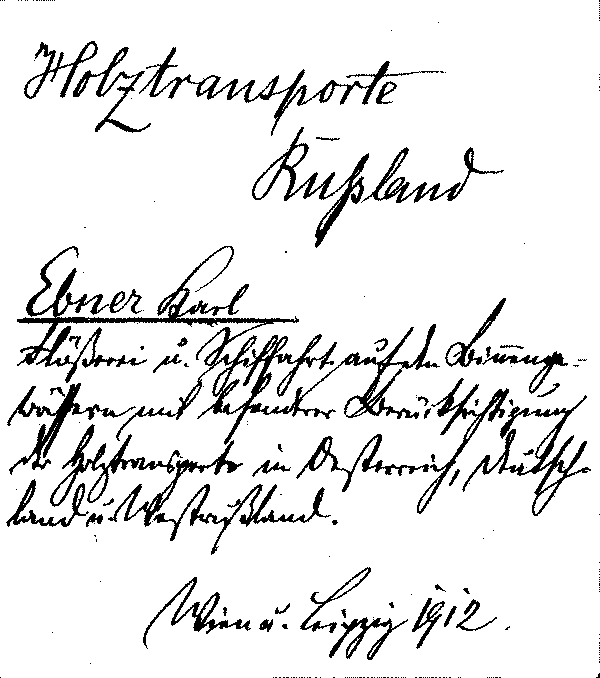 Holztransporte
Rußland
Ebner Karl
Flößerei u. Schiffahrt auf den Binnenge-
wässern mit besonderer Berücksichtigung
der Holztransporte in Oesterreich, Deutsch-
land u. Westrußland.
Wien u. Leipzig 1912.